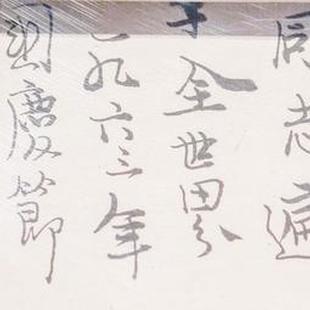 同志遍
于全世界
一九六三年
国慶節